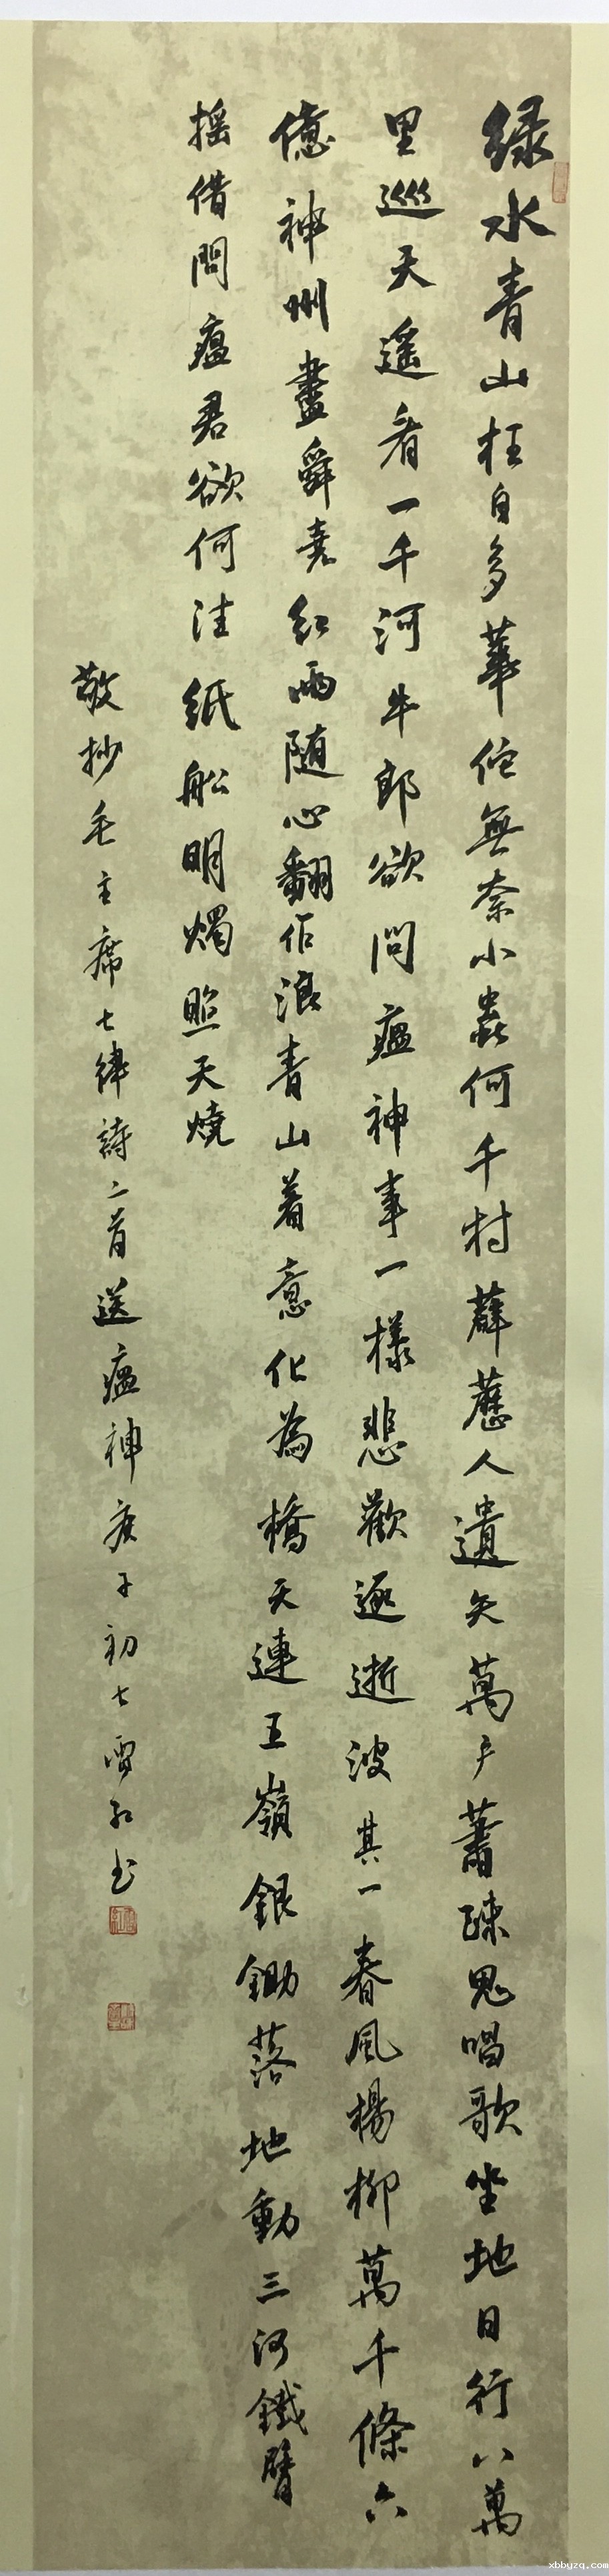 绿水青山枉自多華佗無奈小蟲何千村薜蘿人遺矢萬户蕭疎鬼唱歌坐地日行八萬
里巡天遥看一千河牛郎欲問瘟神事一樣悲歡逐逝波其一春風楊柳萬千條六
億神州盡舜堯红雨随心翻作浪青山着意化為橋天連五嶺銀鋤落地動三河鐵臂
摇借問瘟君欲何往紙船明燭照天燒
敬抄毛主席七律詩二首送瘟神庚子初七雪红书
xbbyzq.com